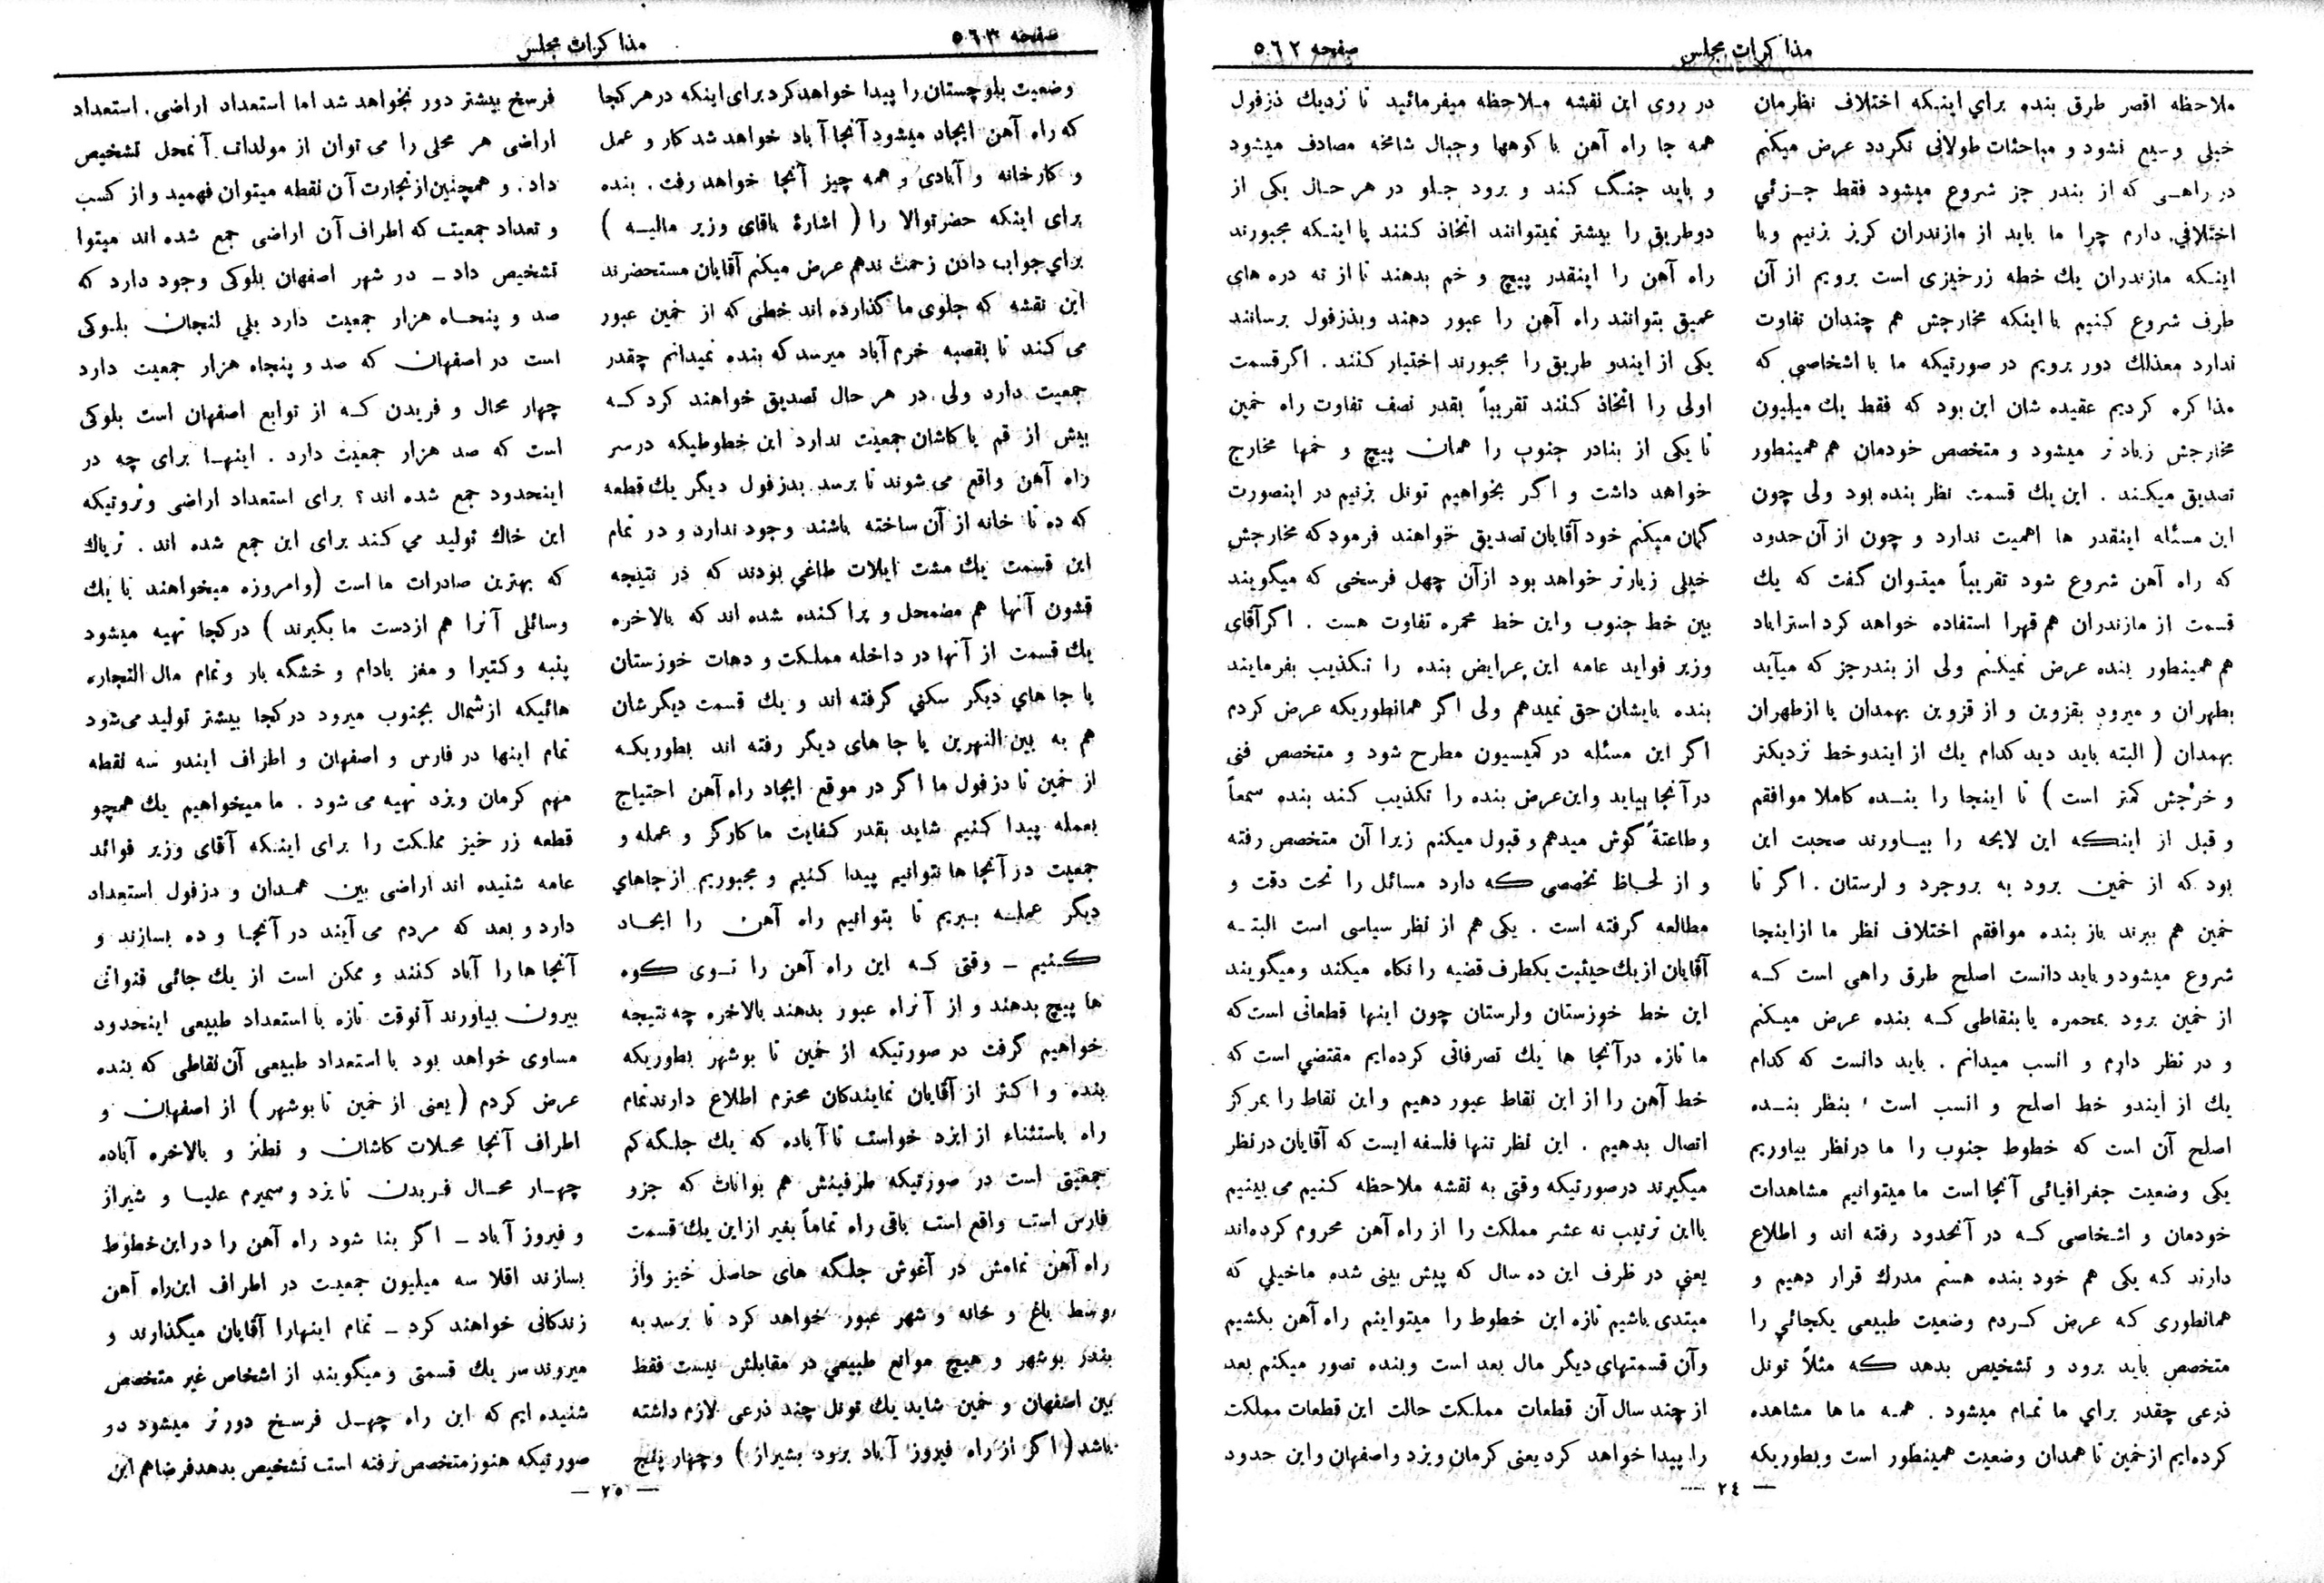 مذاکرات مجلس
صفحه ٥٦٢
ملاحظه اقصر طرق بنده براي اینکه اختلاف نظرمان
خیلی وسیع نشود و مباحثات طولانی نگردد عرض میکنم
در راهی که از بندر جز شروع میشود فقط جزئي
اختلافي دارم چرا ما باید از مازندران کریز بزنیم وبا
اینکه مازندران یك خطه زرخیزی است برویم از آن
طرف شروع کنیم با اینکه مخارجش هم چندان تفاوت
ندارد معذلك دور برویم در صورتیکه ما با اشخاصی که
مذاکره کردیم عقیده شان این بود که فقط یك میلیون
مخارجش زیاد تر میشود و متخصص خودمان هم همینطور
تصدیق میکند . این یك قسمت نظر بنده بود ولی چون
این مسئله اینقدر ها اهمیت ندارد و چون از آن حدود
که راه آهن شروع شود تقریباً میتوان گفت که یك
قسمت از مازندران هم قهرا استفاده خواهد کرد استراباد
هم همینطور بنده عرض نمیکنم ولی از بندرجز که میآید
بطهران و میرود بقزوین و از قزوین بهمدان یا ازطهران
بهمدان ( البته باید دید کدام یك از ایندوخط نزدیکتر
و خرجش کمتر است ) تا اینجا را بنده کاملا موافقم
و قبل از اینکه این لایحه را بیاورند صحبت این
بود که از خمین برود به بروجرد و لرستان . اگر تا
خمین هم ببرند باز بنده موافقم اختلاف نظر ما ازاینجا
شروع میشود و باید دانست اصلح طرق راهی است که
از خمین برود بمحمره یا بنقاطی که بنده عرض میکنم
و در نظر دارم و انسب میدانم . باید دانست که کدام
یك از ایندو خط اصلح و انسب است ، بنظر بنده
اصلح آن است که خطوط جنوب را ما درنظر بیاوریم
یکی وضعیت جغرافیائی آنجا است ما میتوانیم مشاهدات
خودمان و اشخاصی که در آنحدود رفته اند و اطلاع
دارند که یکی هم خود بنده هستم مدرك قرار دهیم و
همانطوری که عرض کردم وضعیت طبیعی یکجائي را
متخصص باید برود و تشخیص بدهد که مثلاً تونل
ذرعی چقدر براي ما تمام میشود . همه ما ها مشاهده
کرده‌ایم ازخمین تا همدان وضعیت همینطور است وبطوریکه
در روی این نقشه ملاحظه میفرمائید تا نزدیك دزفول
همه جا راه آهن با کوهها وجبال شامخه مصادف میشود
و باید جنگ کند و برود جلو در هر حال یکی از
دوطریق را بیشتر نمیتوانند اتخاذ کنند یا اینکه مجبورند
راه آهن را اینقدر پیچ و خم بدهند تا از ته دره های
عمیق بتوانند راه آهن را عبور دهند وبدزفول برسانند
یکی از ایندو طریق را مجبورند اختیار کنند . اگرقسمت
اولی را اتخاذ کنند تقریباً بقدر نصف تفاوت راه خمین
تا یکی از بنادر جنوب را همان پیچ و خمها مخارج
خواهد داشت و اگر بخواهیم تونل بزنیم در اینصورت
کمان میکنم خود آقایان تصدیق خواهند فرمود که مخارجش
خیلی زیادتر خواهد بود ازآن چهل فرسخی که میگویند
بین خط جنوب واین خط محمره تفاوت هست . اگرآقای
وزیر فواید عامه این عرایض بنده را تکذیب بفرمایند
بنده بایشان حق نمیدهم ولی اگر همانطوریکه عرض کردم
اگر این مسئله در کمیسیون مطرح شود و متخصص فنی
درآنجا بیاید واین‌عرض بنده را تکذیب کند بنده سمعاً
وطاعتةً گوش میدهم و قبول میکنم زیرا آن متخصص رفته
و از لحاظ تخصصی که دارد مسائل را تحت دقت و
مطالعه گرفته است . یکی هم از نظر سیاسی است البته
آقایان ازیك‌حیثیت یکطرف قضیه را نگاه میکند ومیگویند
این خط خوزستان ولرستان چون اینها قطعاتی است که
ما تازه درآنجا ها یك تصرفاتی کرده‌ایم مقتضي است که
خط آهن را از این نقاط عبور دهیم واین نقاط را بمرکز
اتصال بدهیم . این نظر تنها فلسفه ایست که آقایان درنظر
میگیرند درصورتیکه وقتی به نقشه ملاحظه کنیم می بینیم
بااین ترتیب نه عشر مملکت را از راه آهن محروم کرده‌اند
یعني در ظرف این ده سال که پیش بینی شده ماخیلي که
مبتدی باشیم تازه این خطوط را میتوایتم راه آهن بکشیم
وآن قسمتهای دیگر مال بعد است وبنده تصور میکنم بعد
ازچند سال آن قطعات مملکت حالت این قطعات مملکت
را پیدا خواهد کرد یعنی کرمان ویزد واصفهان واین حدود
— ٢٤ —
صفحه ٥٦٣
مذاکرات مجلس
وضعیت بلوچستان را پیدا خواهدکرد برای اینکه درهرکجا
که راه آهن ایجاد میشود آنجا آباد خواهد شد کار و عمل
و کارخانه و آبادی و همه چیز آنجا خواهد رفت . بنده
برای اینکه حضرتوالا را ( اشارهٔ باقای وزیر مالیه )
براي جواب دادن زحمت ندهم عرض میکنم آقایان مستحضرند
این نقشه که جلوی ما گذارده اند خطی که از خمین عبور
می کند تا بقصبه خرم آباد میرسد که بنده نمیدانم چقدر
جمعیت دارد ولی در هر حال تصدیق خواهند کرد که
بیش از قم یا کاشان جمعیت ندارد این خطوطیکه درسر
راه آهن واقع می شوند تا برسد بدزفول دیگر یك قطعه
که ده تا خانه از آن ساخته باشند وجود ندارد و در تمام
این قسمت یك مشت ایلات طاغي بودند که در نتیجه
قشون آنها هم مضمحل و پراکنده شده اند که بالاخره
یك قسمت از آنها در داخله مملکت و دهات خوزستان
یا جا هاي دیگر سکني گرفته اند و یك قسمت دیگرشان
هم به بین النهرین یا جا های دیگر رفته اند بطوریکه
از خمین تا دزفول ما اگر در موقع ایجاد راه آهن احتیاج
بعمله پیدا کنیم شاید بقدر کفایت ما کارگر و عمله و
جمعیت در آنجا ها نتوانیم پیدا کنیم و مجبوریم ازجاهاي
دیگر عمله ببریم تا بتوانیم راه آهن را ایجاد
کنیم – وقتی که این راه آهن را توی کوه
ها پیچ بدهند و از آنراه عبور بدهند بالاخره چه نتیجه
خواهیم گرفت در صورتیکه از خمین تا بوشهر بطوریکه
بنده و اکثر از آقایان نمایندکان محترم اطلاع دارند تمام
راه باستثناء از ایزد خواست تا آباده که یك جلگه کم
جمعیتی است در صورتیکه طرفینش هم بوانات که جزو
فارس است واقع است باقی راه تماماً بغیر ازاین یك قسمت
راه آهن تمامش در آغوش جلگه های حاصل خیز واز
وسط باغ و خانه و شهر عبور خواهد کرد تا برسد به
بندر بوشهر و هیچ موانع طبیعي در مقابلش نیست فقط
بین اصفهان و خمین شاید یك تونل چند ذرعی لازم داشته
باشد ( اگر از راه فیروز آباد برود بشیراز ) وچهار پنج
فرسخ بیشتر دور نخواهد شد اما استعداد اراضی . استعداد
اراضی هر محلی را می توان از مولدات آنمحل تشخیص
داد . و همچنین از تجارت آن نقطه میتوان فهمید و از کسب
و تعداد جمعیت که اطراف آن اراضی جمع شده اند میتوا
تشخیص داد – در شهر اصفهان بلوکی وجود دارد که
صد و پنجاه هزار جمعیت دارد بلي لنجان بلوکی
است در اصفهان که صد و پنجاه هزار جمعیت دارد
چهار محال و فریدن که از توابع اصفهان است بلوکی
است که صد هزار جمعیت دارد . اینها برای چه در
اینحدود جمع شده اند ؟ برای استعداد اراضی وثروتیکه
این خاك تولید می کند برای این جمع شده اند . تریاك
که بهترین صادرات ما است (وامروزه میخواهند با یك
وسائلی آنرا هم ازدست ما بگیرند ) در کجا تهیه میشود
پنبه و کتیرا و مغز بادام و خشگه بار وتمام مال التجاره
هائیکه ازشمال بجنوب میرود درکجا بیشتر تولید می‌شود
تمام اینها در فارس و اصفهان و اطراف ایندو سه نقطه
مهم کرمان ویزد تهیه می شود . ما میخواهیم یك همچو
قطعه زر خیز مملکت را برای اینکه آقای وزیر فوائد
عامه شنیده اند اراضی بین همدان و دزفول استعداد
دارد و بعد که مردم می آیند در آنجا و ده بسازند و
آنجا ها را آباد کنند و ممکن است از یك جائی قنواتی
بیرون بیاورند آنوقت تازه با استعداد طبیعی اینحدود
مساوی خواهد بود با استعداد طبیعی آن نقاطی که بنده
عرض کردم ( یعنی از خمین تا بوشهر ) از اصفهان و
اطراف آنجا محلات کاشان و نطنز و بالاخره آباده
چهار محال فریدن تا یزد وسمیرم علیا و شیراز
و فیروز آباد – اگر بنا شود راه آهن را دراین خطوط
بسازند اقلا سه میلیون جمعیت در اطراف این‌راه آهن
زندکانی خواهند کرد – تمام اینهارا آقایان میگذارند و
میروند سر یك قسمتی و میگویند از اشخاص غیر متخصص
شنیده ایم که این راه چهل فرسخ دورتر میشود در
صورتیکه هنوز متخصص نرفته است تشخیص بدهد فرضا هم این
— ٢٥ —